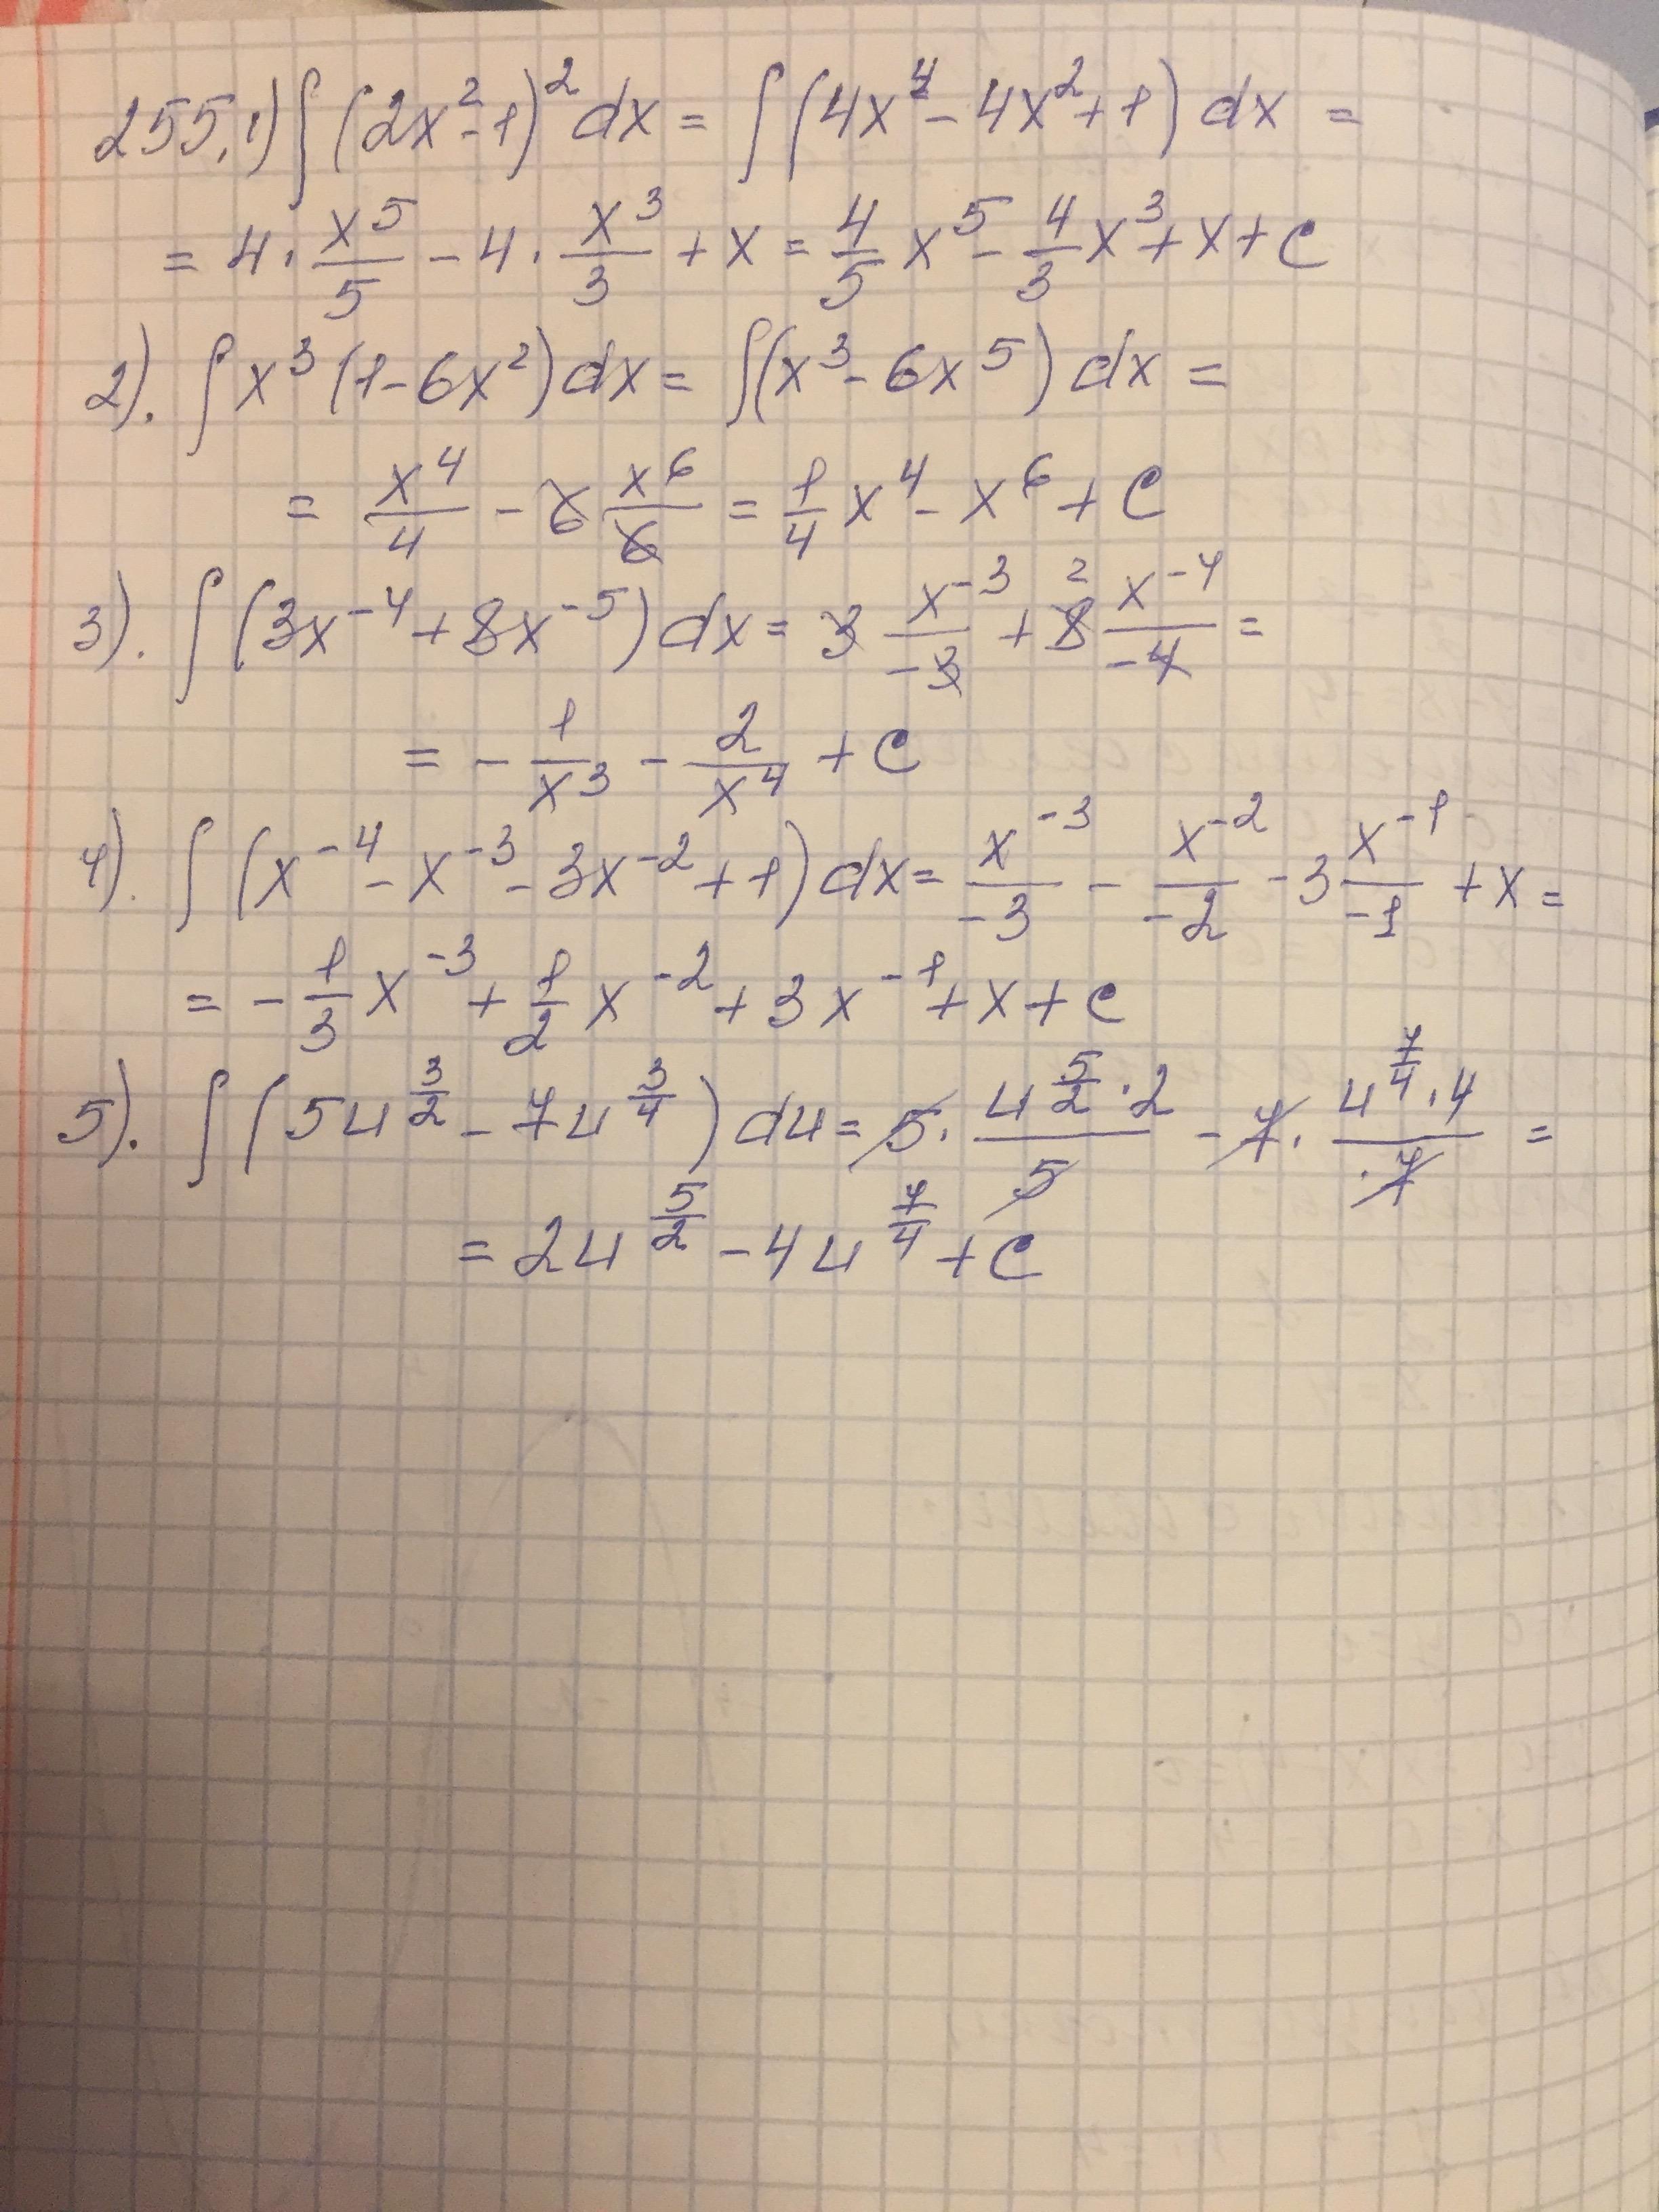 255. 1) ∫(2x²-1)²dx = ∫(4x⁴-4x²+1)dx =
= 4·x⁵/5 - 4·x³/3 + x = 4/5 x⁵ - 4/3 x³ + x + C
2). ∫x³(1-6x²)dx = ∫(x³-6x⁵)dx =
= x⁴/4 - 6 x⁶/6 = 1/4 x⁴ - x⁶ + C
3). ∫(3x⁻⁴+8x⁻⁵)dx = 3 x⁻³/-3 + 8² x⁻⁴/-4 =
= - 1/x³ - 2/x⁴ + C
4). ∫(x⁻⁴-x⁻³-3x⁻²+1)dx = x⁻³/-3 - x⁻²/-2 - 3 x⁻¹/-1 + x =
= - 1/3 x⁻³ + 1/2 x⁻² + 3x⁻¹ + x + C
5). ∫(5u^(3/2) - 7u^(3/4))du = 5·u^(5/2)·2/5 - 7·u^(7/4)·4/7 =
= 2u^(5/2) - 4u^(7/4) + C